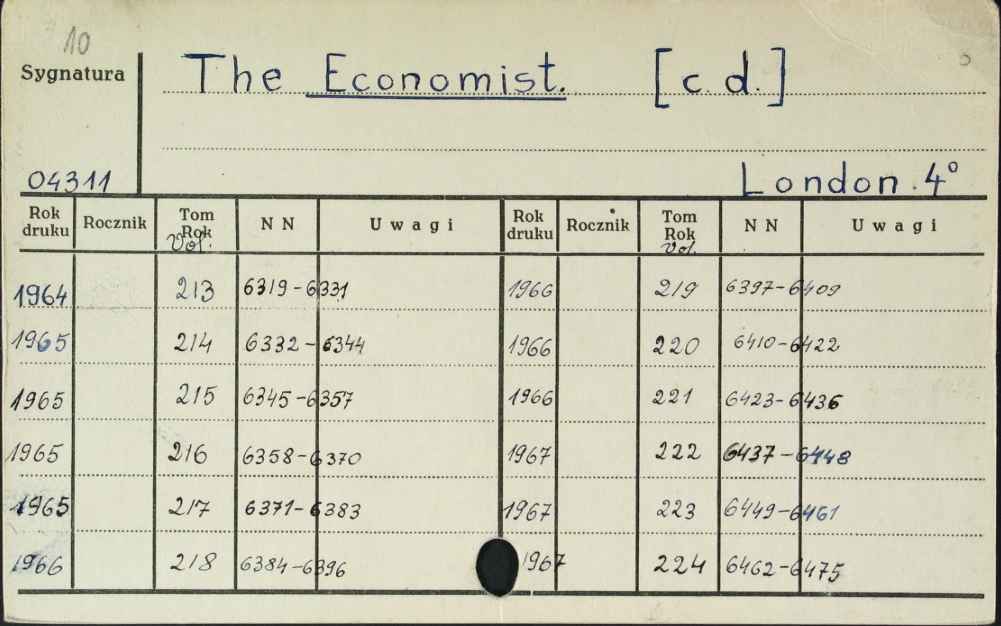 10
Sygnatura The Economist. [c. d.]
04311 London. 4°
Rok druku Rocznik Tom Rok Vol. N N Uwagi Rok druku Rocznik Tom Rok Vol. N N Uwagi
1964 213 6319-6331 1966 219 6397-6409
1965 214 6332-6344 1966 220 6410-6422
1965 215 6345-6357 1966 221 6423-6436
1965 216 6358-6370 1967 222 6437-6448
1965 217 6371-6383 1967 223 6449-6461
1966 218 6384-6396 1967 224 6462-6475